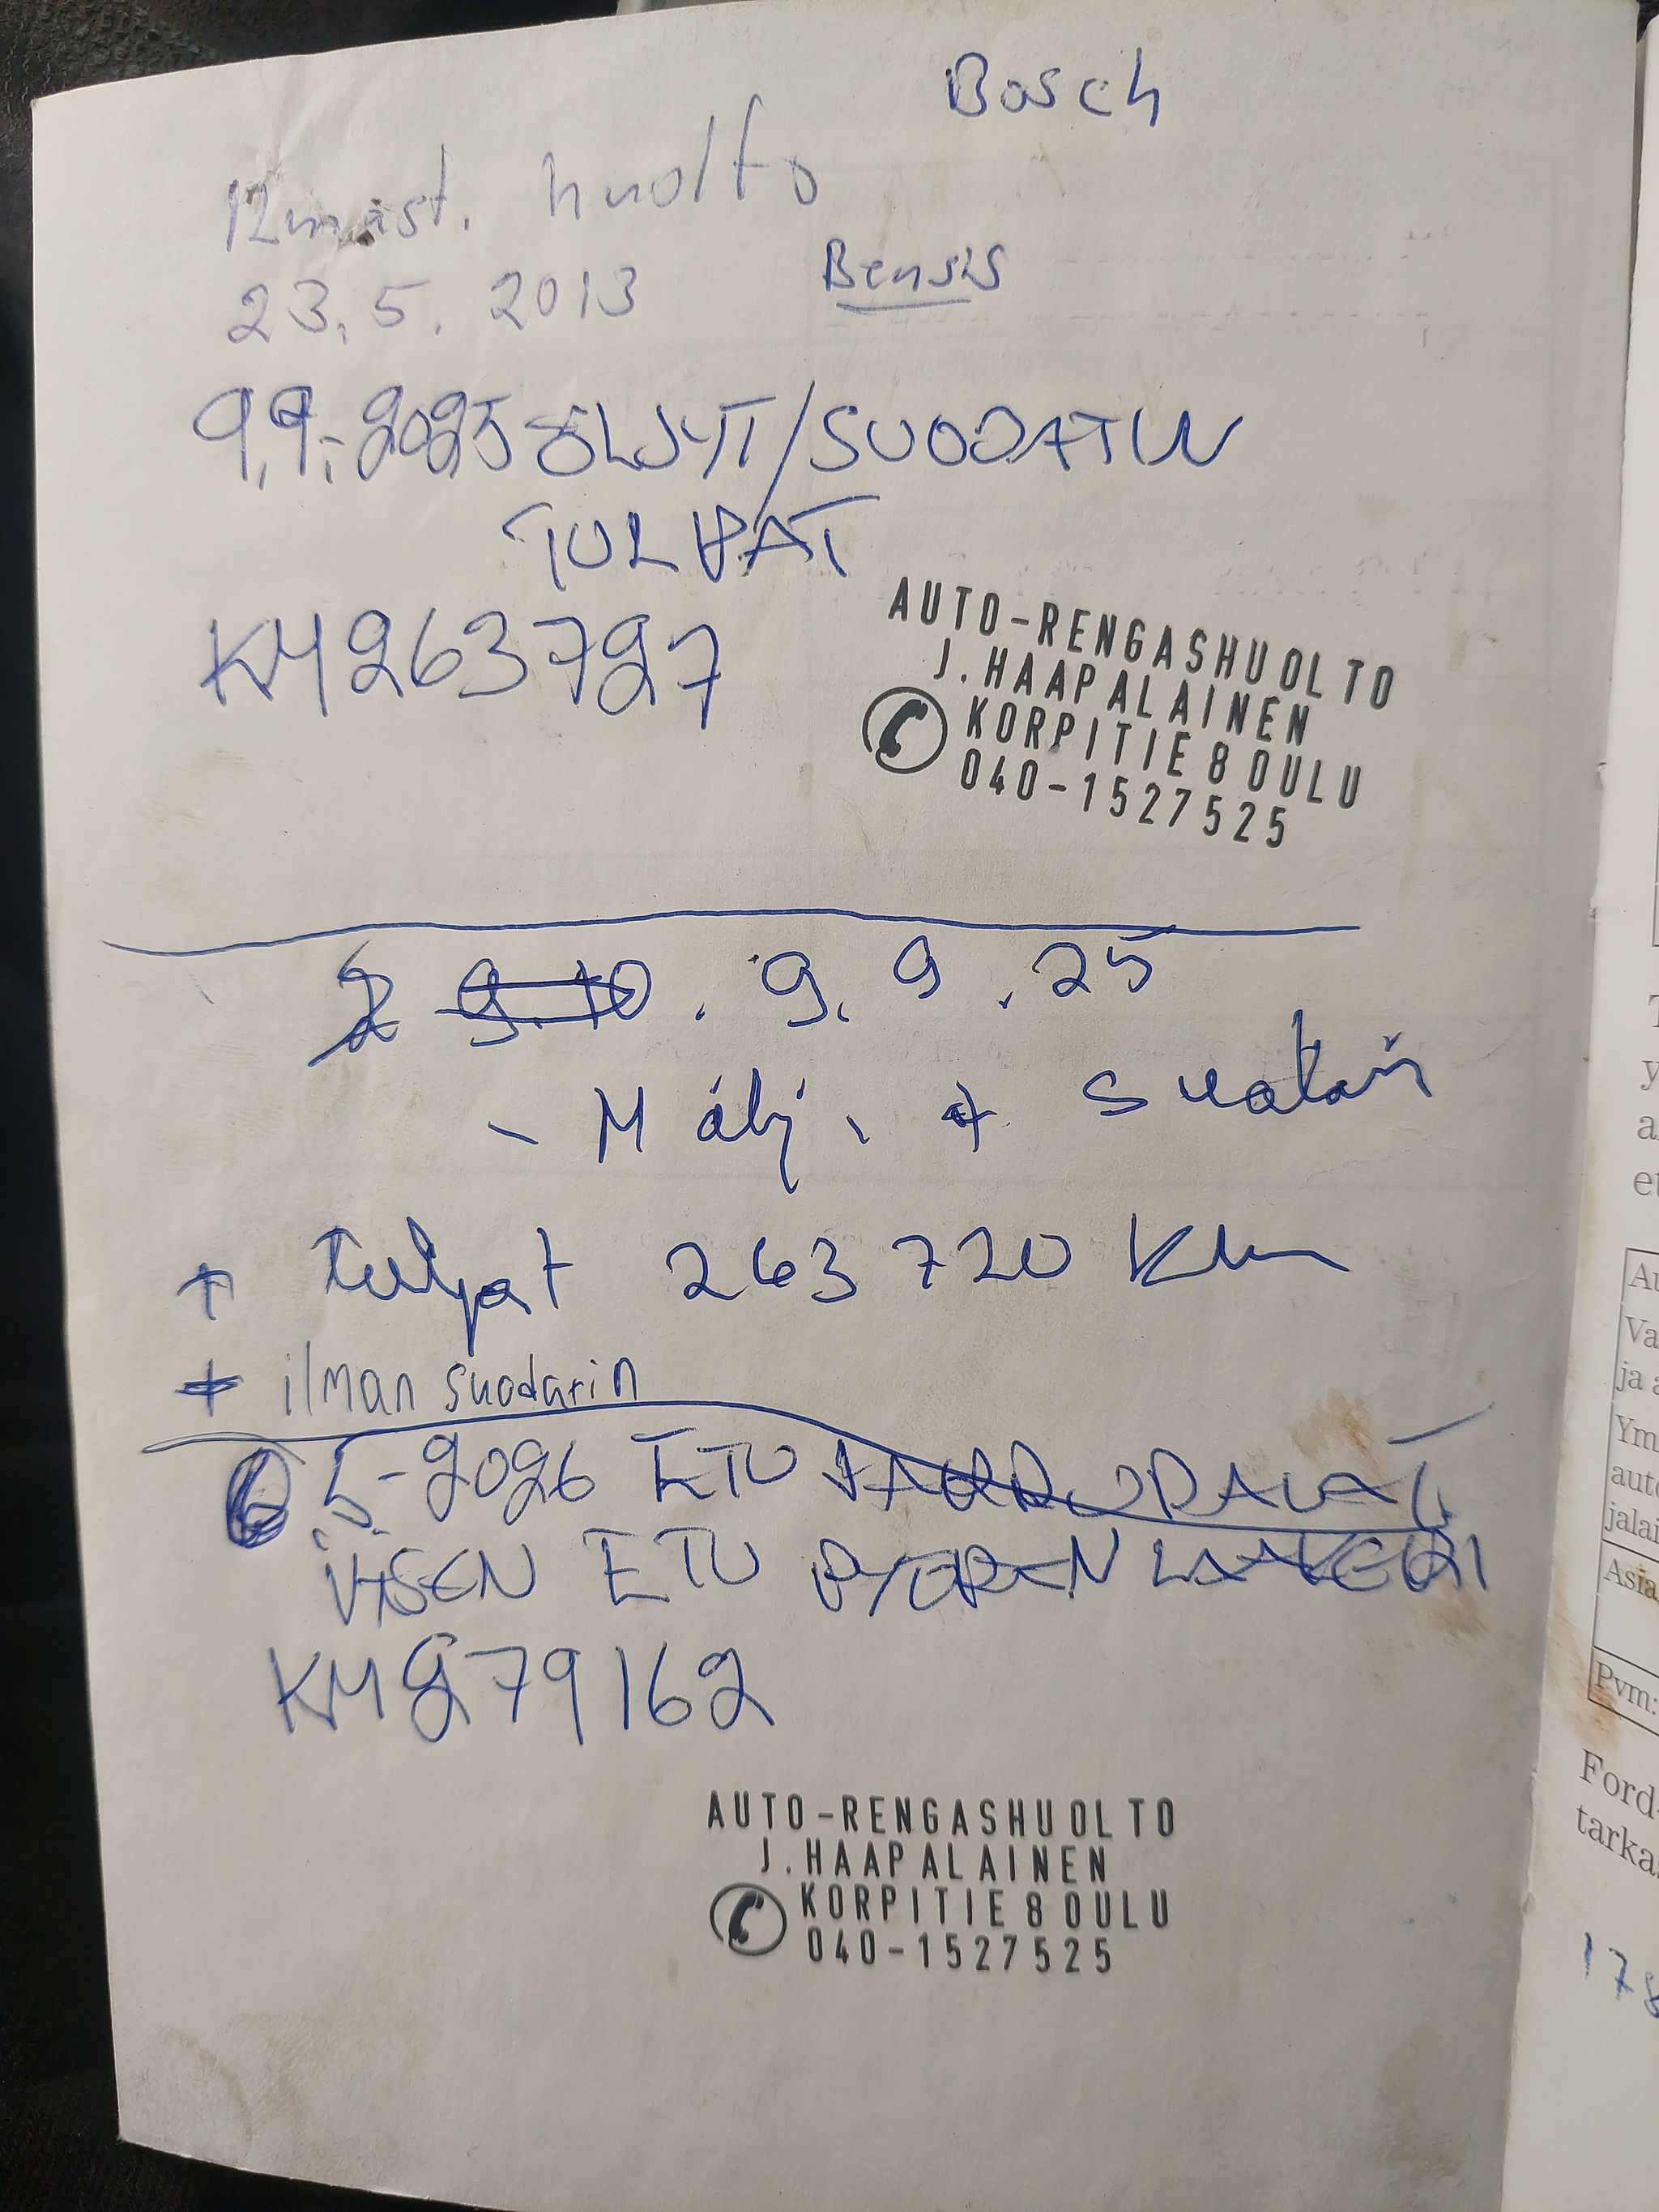 Bosch
Ilmast. huolto
23.5.2013
Bensis
9.9.-2025 ÖLJYT/SUODATIN
TULPAT
KM 263727
AUTO-RENGASHUOLTO
J.HAAPALAINEN
KORPITIE 8 OULU
040-1527525
9.10. 9.9.25
- M öljy. +
+ tulpat 263 720 km
+ ilman suodatin
5.-2026 ETU
VASEN ETU PYÖRÄN LAAKERI
KM 279162
AUTO-RENGASHUOLTO
J.HAAPALAINEN
KORPITIE 8 OULU
040-1527525
Au
Va
ja a
Ym
auto
jalai
Asia
Pvm:
Ford-
tarka
178